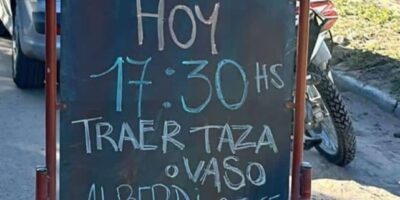 HOY
17:30 HS
TRAER TAZA
O VASO
ALBERDI